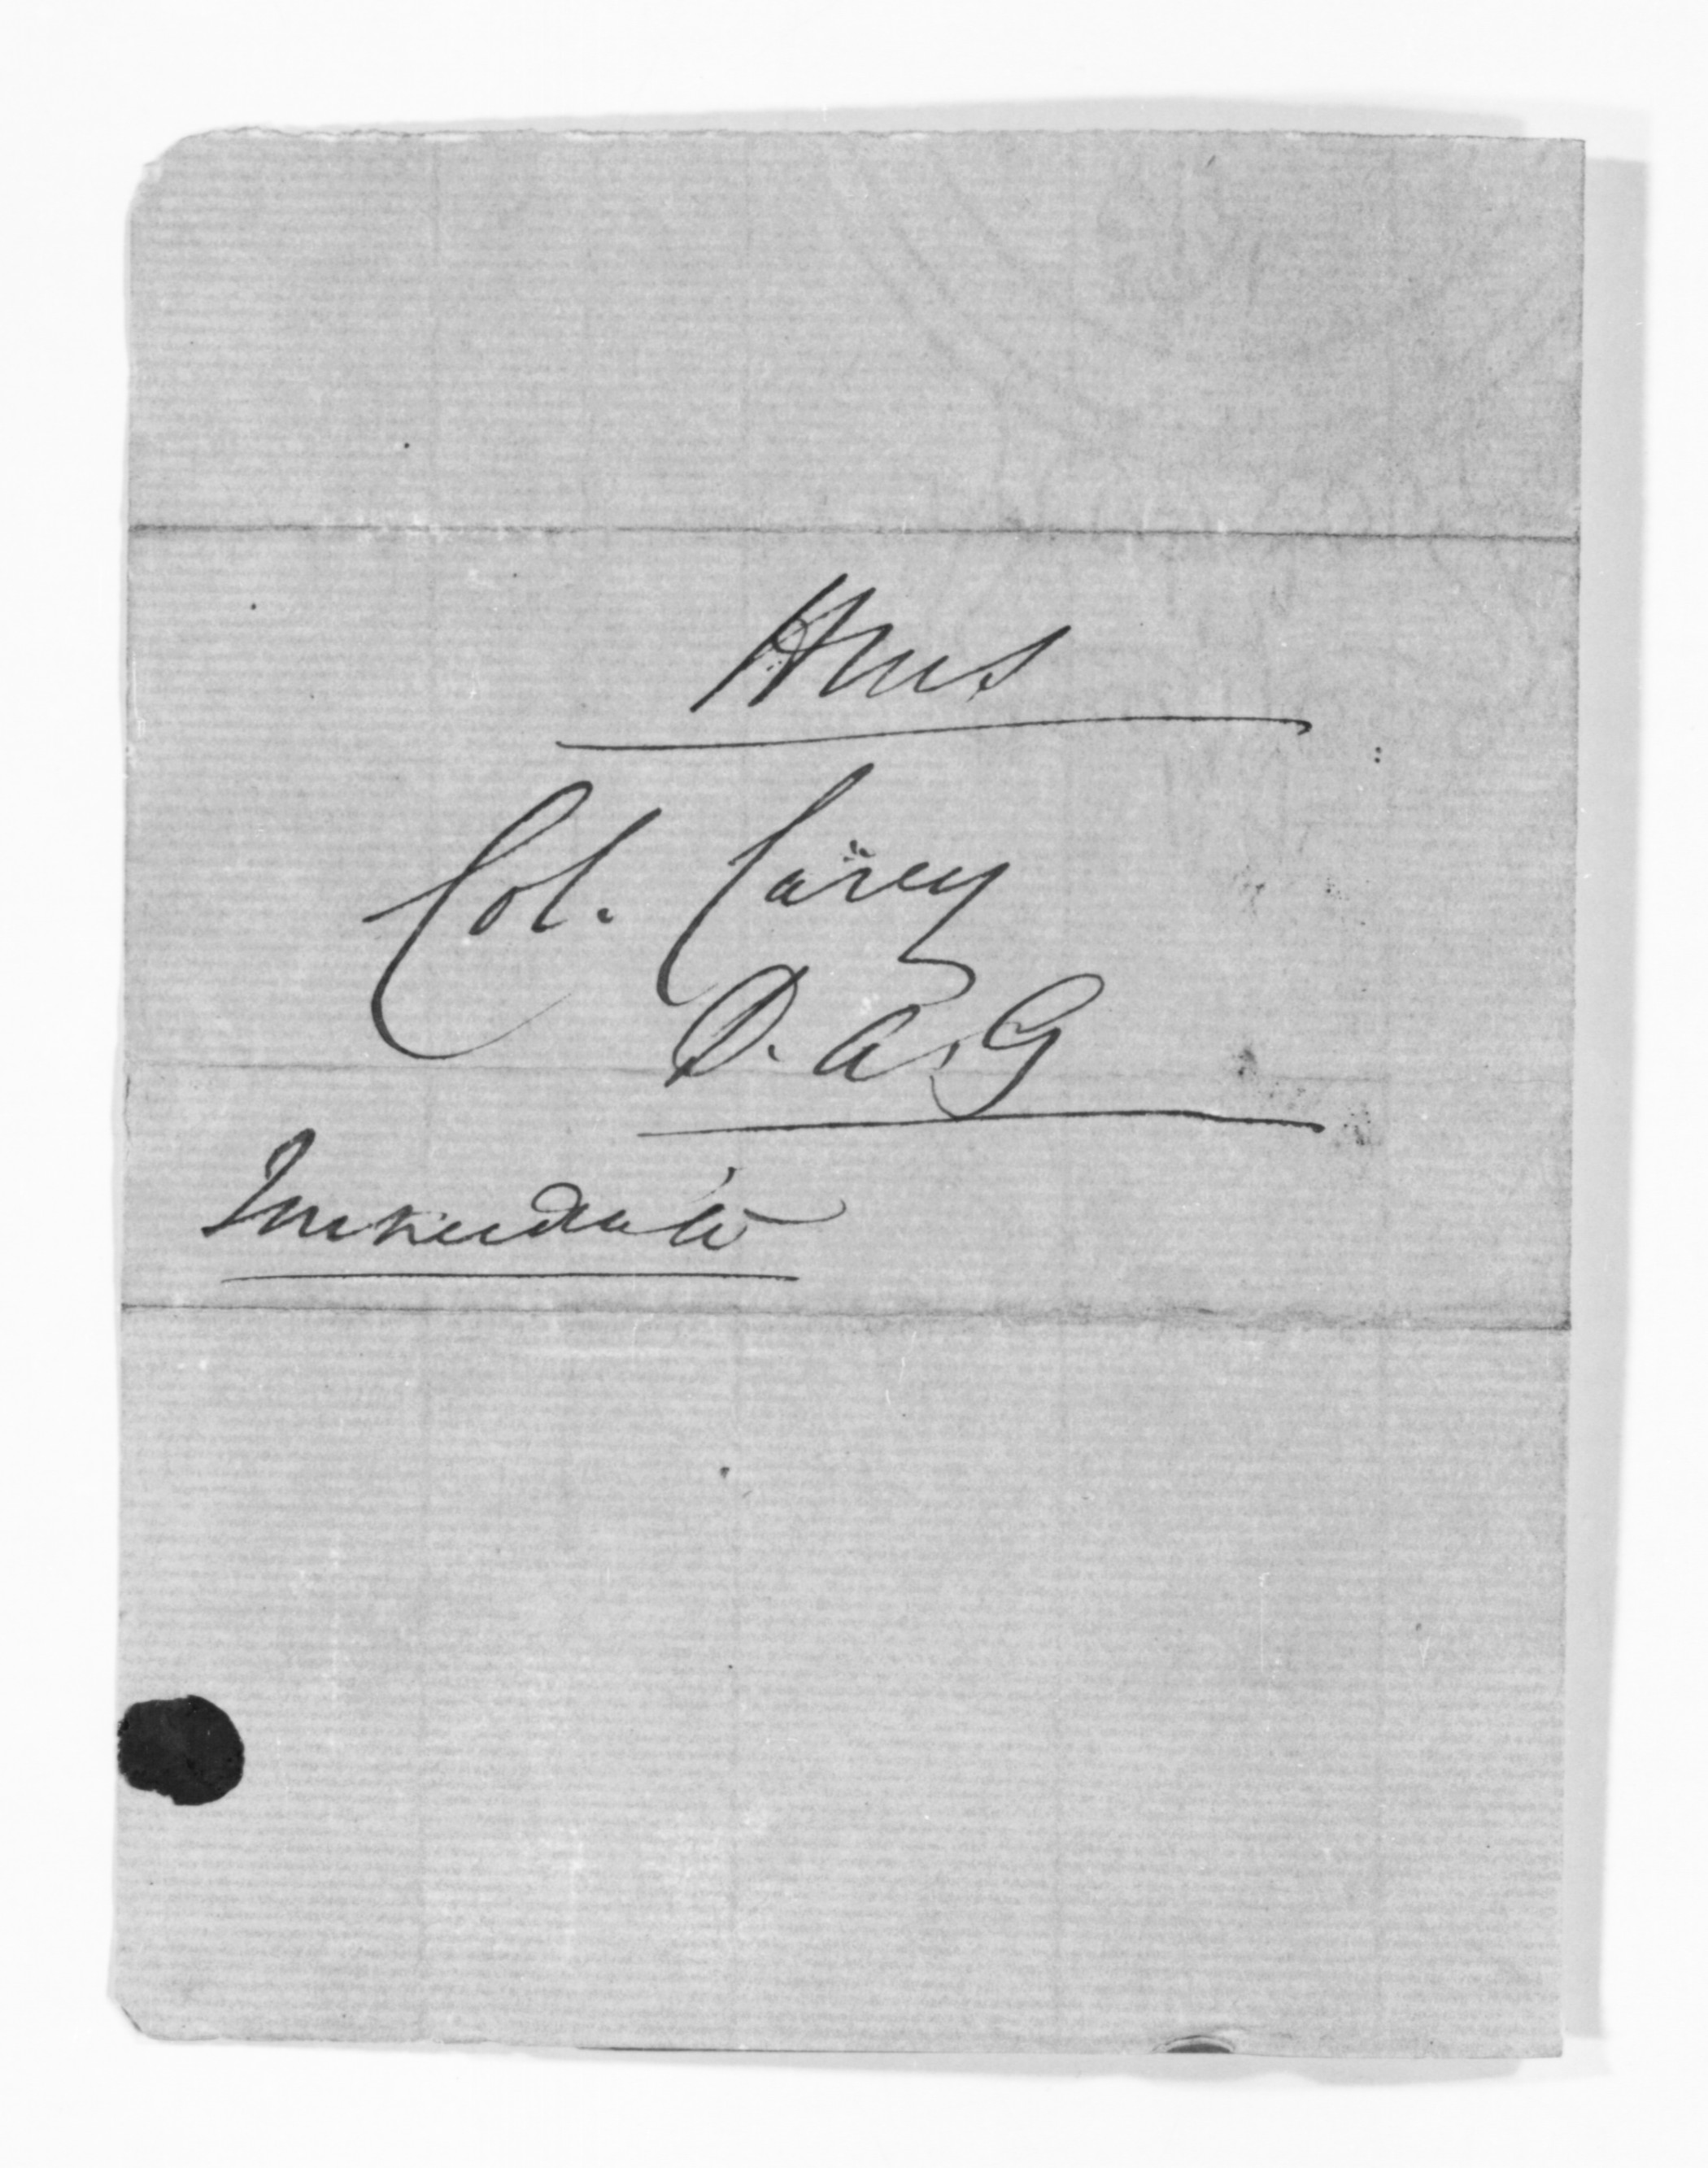 HMS
Col. Carey
D. A. G
Immediate